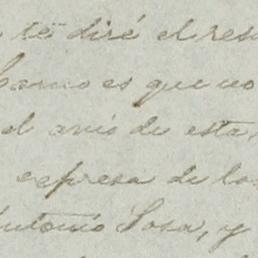 te diré el res
es que no
el avis de esta
expresa de los
Antonio Sosa, y